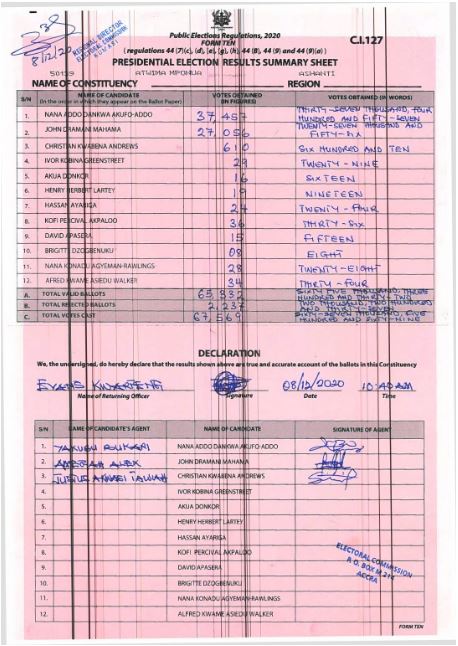 8/12/20
REGIONAL DIRECTOR
ELECTORAL COMMISSION
KUMASI
Public Elections Regulations, 2020
FORM TEN
C.I.127
(regulations 44 (7)(c), (d), (e), (g), (h), 44 (8), 44 (9) and 44 (9)(a))
PRESIDENTIAL ELECTION RESULTS SUMMARY SHEET
ATWIMA MPONUA ASHANTI
NAME OF CONSTITUENCY REGION
S/N NAME OF CANDIDATE (In the order in which they appear on the Ballot Paper) VOTES OBTAINED (IN FIGURES) VOTES OBTAINED (IN WORDS)
1. NANA ADDO DANKWA AKUFO-ADDO 37,457 THIRTY-SEVEN THOUSAND, FOUR HUNDRED AND FIFTY-SEVEN
2. JOHN DRAMANI MAHAMA 27,056 TWENTY-SEVEN THOUSAND AND FIFTY-SIX
3. CHRISTIAN KWABENA ANDREWS 610 SIX HUNDRED AND TEN
4. IVOR KOBINA GREENSTREET 29 TWENTY-NINE
5. AKUA DONKOR 16 SIXTEEN
6. HENRY HERBERT LARTEY 19 NINETEEN
7. HASSAN AYARIGA 24 TWENTY-FOUR
8. KOFI PERCIVAL AKPALOO 36 THIRTY-SIX
9. DAVID APASERA 15 FIFTEEN
10. BRIGITTE DZOGBENUKU 08 EIGHT
11. NANA KONADU AGYEMAN-RAWLINGS 28 TWENTY-EIGHT
12. ALFRED KWAME ASIEDU WALKER 34 THIRTY-FOUR
A. TOTAL VALID BALLOTS 65,332 SIXTY FIVE THOUSAND, THREE HUNDRED AND THIRTY-TWO
B. TOTAL REJECTED BALLOTS 2,237 TWO THOUSAND, TWO HUNDRED AND THIRTY-SEVEN
C. TOTAL VOTES CAST 67,569 SIXTY-SEVEN THOUSAND, FIVE HUNDRED AND SIXTY-NINE
DECLARATION
We, the undersigned, do hereby declare that the results shown above are true and accurate account of the ballots in this Constituency
EVANS KWARTENG 08/12/2020 10:40AM
Name of Returning Officer Signature Date Time
S/N NAME OF CANDIDATE'S AGENT NAME OF CANDIDATE SIGNATURE OF AGENT
1. NANA ADDO DANKWA AKUFO-ADDO
2. JOHN DRAMANI MAHAMA
3. CHRISTIAN KWABENA ANDREWS
4. IVOR KOBINA GREENSTREET
5. AKUA DONKOR
6. HENRY HERBERT LARTEY
7. HASSAN AYARIGA
8. KOFI PERCIVAL AKPALOO
9. DAVID APASERA
10. BRIGITTE DZOGBENUKU
11. NANA KONADU AGYEMAN-RAWLINGS
12. ALFRED KWAME ASIEDU WALKER
ELECTORAL COMMISSION
P. O. BOX M 214
ACCRA
FORM TEN